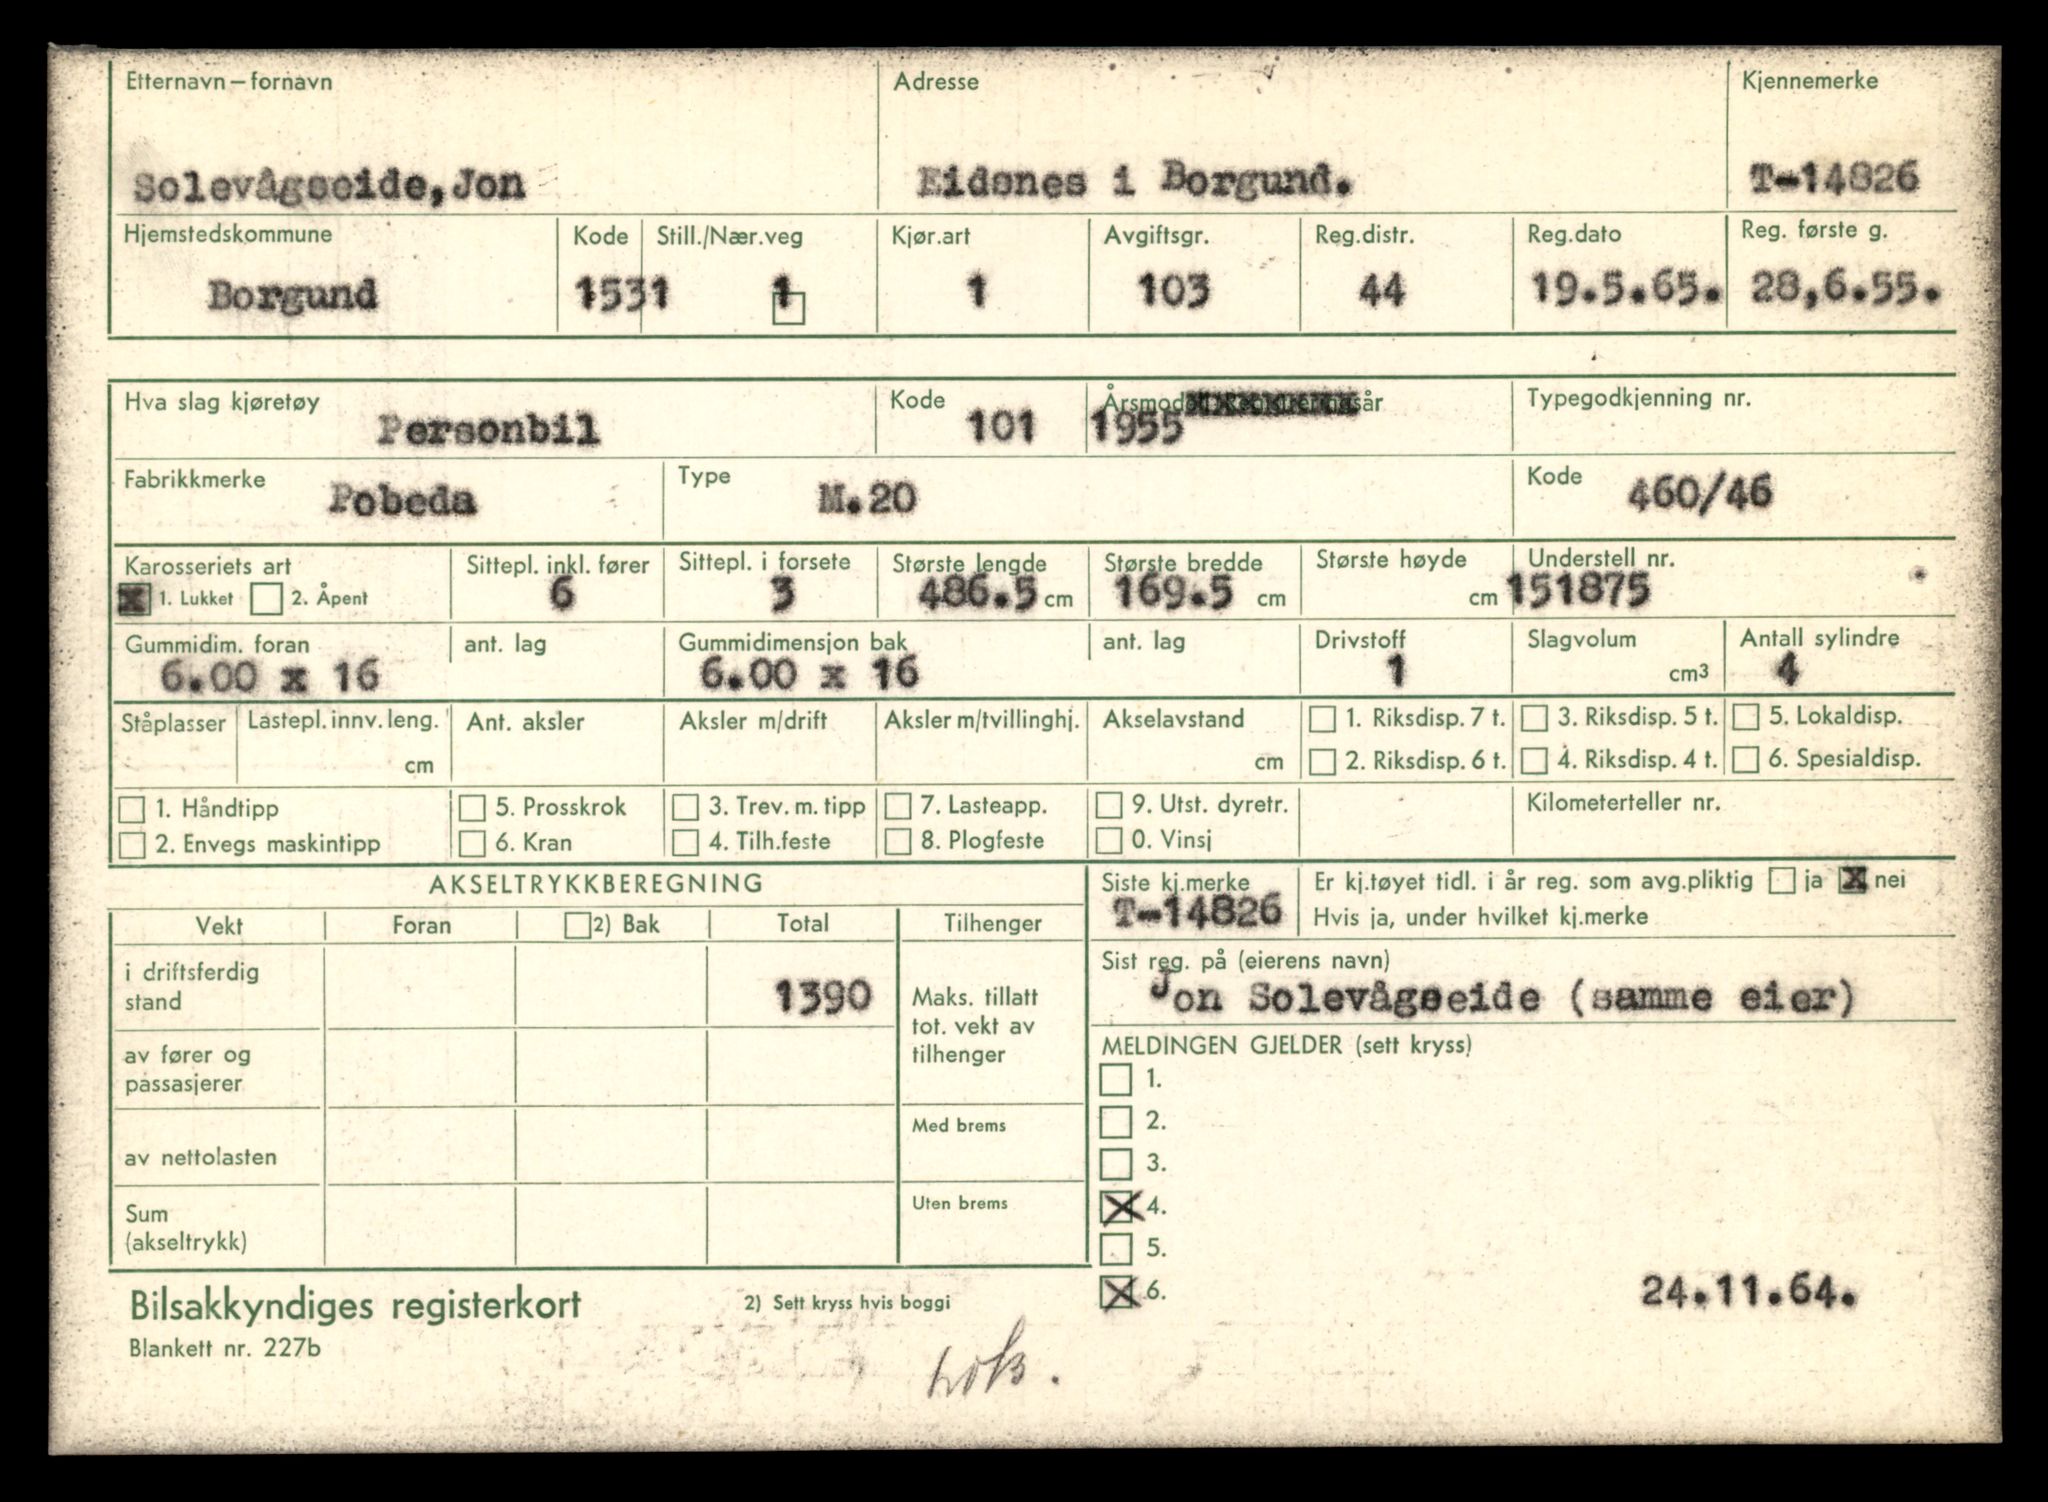 Etternavn – fornavn Adresse Kjennemerke
Solevågseide, Jon Eidsnes i Borgund. T-14826
Hjemstedskommune Kode Still./Nær.veg Kjør.art Avgiftsgr. Reg.distr. Reg.dato Reg. første g.
Borgund 1531 1 1 103 44 19.5.65. 28,6.55.
Hva slag kjøretøy Kode Årsmodell Registreringsår Typegodkjenning nr.
Personbil 101 1955
Fabrikkmerke Type Kode
Pobeda M.20 460/46
Karosseriets art Sittepl. inkl. fører Sittepl. i forsete Største lengde Største bredde Største høyde Understell nr.
X 1. Lukket 2. Åpent 6 3 486.5 cm 169.5 cm cm 151875
Gummidim. foran ant. lag Gummidimensjon bak ant. lag Drivstoff Slagvolum Antall sylindre
6.00 x 16 6.00 x 16 1 cm3 4
Ståplasser Lastepl. innv. leng. Ant. aksler Aksler m/drift Aksler m/tvillinghj. Akselavstand 1. Riksdisp. 7 t. 3. Riksdisp. 5 t. 5. Lokaldisp.
cm cm 2. Riksdisp. 6 t. 4. Riksdisp. 4 t. 6. Spesialdisp.
1. Håndtipp 5. Prosskrok 3. Trev. m. tipp 7. Lasteapp. 9. Utst. dyretr. Kilometerteller nr.
2. Envegs maskintipp 6. Kran 4. Tilh.feste 8. Plogfeste 0. Vinsj
AKSELTRYKKBEREGNING Siste kj.merke Er kj.tøyet tidl. i år reg. som avg.pliktig ja X nei
T-14826 Hvis ja, under hvilket kj.merke
Vekt Foran 2) Bak Total Tilhenger
Sist reg. på (eierens navn)
i driftsferdig stand 1390 Maks. tillatt tot. vekt av tilhenger
Jon Solevågseide (samme eier)
MELDINGEN GJELDER (sett kryss)
av fører og passasjerer
1.
2.
Med brems
av nettolasten
3.
X 4.
Uten brems
Sum (akseltrykk)
5.
X 6. 24.11.64.
Bilsakkyndiges registerkort 2) Sett kryss hvis boggi
Blankett nr. 227b